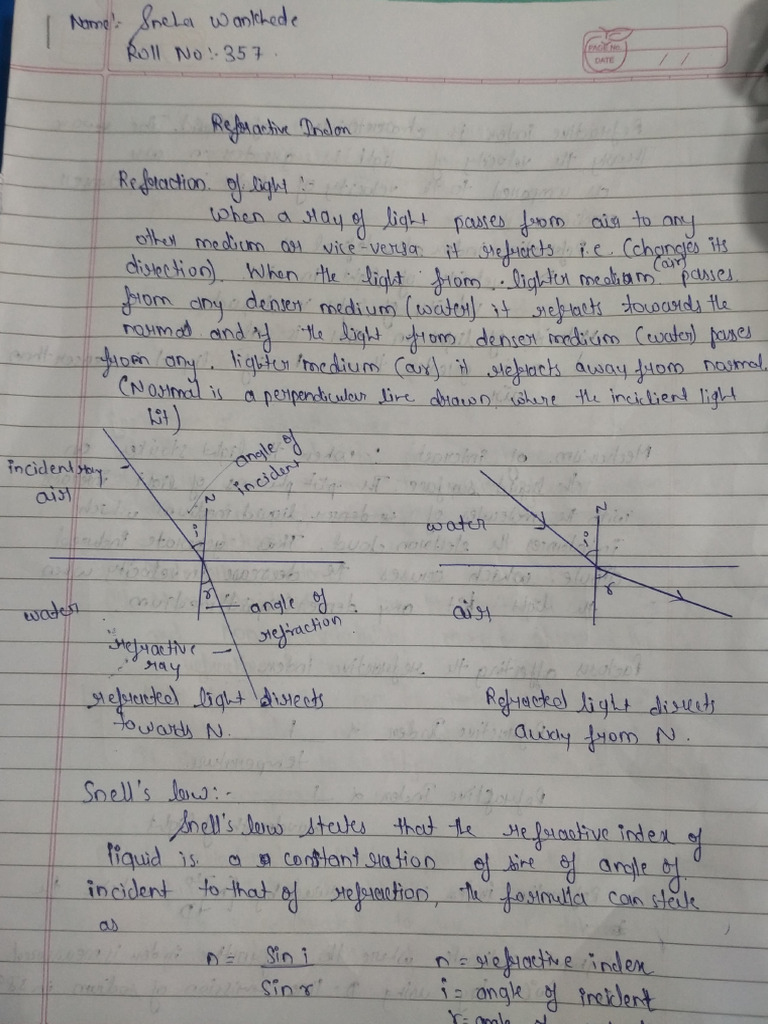 Name:- Sneha Wankhede
Roll No:- 357.
PAGE No.
DATE / /
Refractive Index
Refraction of light :-
When a ray of light passes from air to any
other medium or vice-versa it refracts i.e. (changes its
direction). When the light from . lighter medium (air) passes
from any denser medium (water) it refracts towards the
normal and if the light from denser medium (water) passes
from any . lighter medium (air) it refracts away from normal.
(Normal is a perpendicular line drawn, where the incident light
hit)
incident ray
angle of
incident
air
N
i
water
r
angle of
refraction
refractive
ray
refracted light directs
towards N.
water
N
i
air
r
Refracted light directs
away from N.
Snell's law:-
Snell's law states that the refractive index of
liquid is a constant ration of sine of angle of
incident to that of refraction, the formula can state
as
n = sin i
sin r
n = refractive index
i = angle of incident
r = angle of